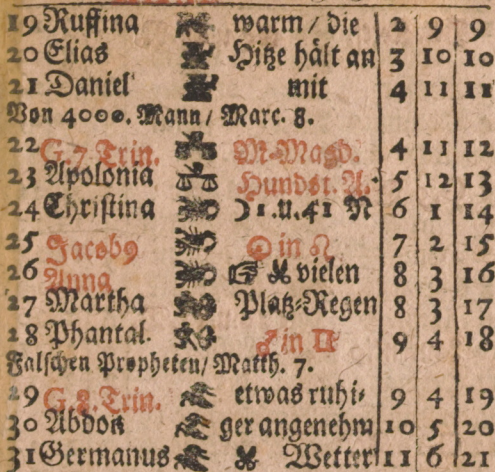 19 Ruffina warm / die 2 9 9
20 Elias Hitze hält an 3 10 10
21 Daniel mit 4 11 11
Von 4000. Mann / Marc. 8.
22 G. 7. Trin. M. Magd. 4 11 12
23 Apolonia Hundst. A. 5 12 13
24 Christina ☽ 1. u. 41 N 6 1 14
25 Jacob9 ☉ in ♌ 7 2 15
26 Anna vielen 8 3 16
27 Martha Platz-Regen 8 3 17
28 Phantal. ♂ in ♊ 9 4 18
Falschen Propheten / Matth. 7.
29 G. 8. Trin. etwas ruhi- 9 4 19
30 Abdon ger angenehm 10 5 20
31 Germanus Wetter 11 6 21